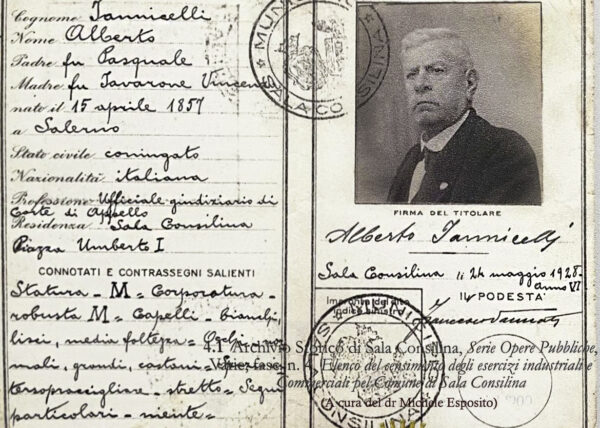 Cognome Iannicelli
Nome Alberto
Padre fu Pasquale
Madre fu Tavarone Vincenza
nato il 15 aprile 1857
a Salerno
Stato civile coniugato
Nazionalità italiana
Professione Ufficiale giudiziario di
Corte di Appello
Residenza Sala Consilina
Piazza Umberto I
CONNOTATI E CONTRASSEGNI SALIENTI
Statura - M - Corporatura -
robusta M - Capelli - bianchi,
lisci, media foltezza - Occhi -
mali, grandi, castani -
stretto - Segni
particolari - niente =
SALA CONSILINA
FIRMA DEL TITOLARE
Alberto Iannicelli
Sala Consilina li 24 maggio 1928
anno VI
Impronta del dito
indice sinistro
IL PODESTÀ
4.1 Archivio Storico di Sala Consilina, Serie Opere Pubbliche,
fasc. n. 4, Elenco del censimento degli esercizi industriali e
Commerciali pel Comune di Sala Consilina
(A cura del dr Michele Esposito)